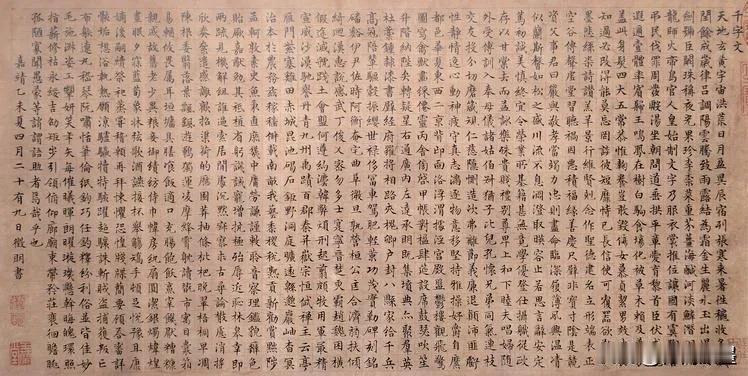 千字文
天地玄黃宇宙洪荒日月盈昃辰宿列張寒來暑往秋收冬
閏餘成歲律呂調陽雲騰致雨露結為霜金生麗水玉出崑
劍號巨闕珠稱夜光果珍李柰菜重芥薑海鹹河淡鱗潛羽
龍師火帝鳥官人皇始制文字乃服衣裳推位讓國有虞陶
弔民伐罪周發殷湯坐朝問道垂拱平章愛育黎首臣伏戎
遐邇壹體率賓歸王鳴鳳在樹白駒食場化被草木賴及萬
蓋此身髮四大五常恭惟鞠養豈敢毀傷女慕貞絜男效才良
知過必改得能莫忘罔談彼短靡恃己長信使可覆器欲難
墨悲絲染詩讚羔羊景行維賢剋念作聖德建名立形端表正
空谷傳聲虛堂習聽禍因惡積福緣善慶尺璧非寶寸陰是競
資父事君曰嚴與敬孝當竭力忠則盡命臨深履薄夙興溫凊
似蘭斯馨如松之盛川流不息淵澄取映容止若思言辭安定
篤初誠美慎終宜令榮業所基籍甚無竟學優登仕攝職從政
存以甘棠去而益詠樂殊貴賤禮別尊卑上和下睦夫唱婦隨
外受傅訓入奉母儀諸姑伯叔猶子比兒孔懷兄弟同氣連枝
交友投分切磨箴規仁慈隱惻造次弗離節義廉退顛沛匪虧
性靜情逸心動神疲守真志滿逐物意移堅持雅操好爵自縻
都邑華夏東西二京背邙面洛浮渭據涇宮殿盤鬱樓觀飛驚
圖寫禽獸畫彩僊靈丙舍傍啓甲帳對楹肆筵設席鼓瑟吹笙
升階納陛弁轉疑星右通廣內左達承明既集墳典亦聚群英
杜稾鍾隸漆書壁經府羅將相路俠槐卿戶封八縣家給千兵
高冠陪輦驅轂振纓世祿侈富車駕肥輕策功茂實勒碑刻銘
磻谿伊尹佐時阿衡奄宅曲阜微旦孰營桓公匡合濟弱扶傾
綺迴漢惠說感武丁俊乂密勿多士寔寧晉楚更霸趙魏困橫
假途滅虢踐土會盟何遵約法韓弊煩刑起翦頗牧用軍最精
宣威沙漠馳譽丹青九州禹跡百郡秦并嶽宗恒岱禪主云亭
鴈門紫塞雞田赤城昆池碣石鉅野洞庭曠遠緜邈巖岫杳冥
治本於農務茲稼穡俶載南畝我藝黍稷稅熟貢新勸賞黜陟
孟軻敦素史魚秉直庶幾中庸勞謙謹敕聆音察理鑑貌辨色
貽厥嘉猷勉其祗植省躬譏誡寵增抗極殆辱近恥林皋幸即
兩疏見機解組誰逼索居閒處沉默寂寥求古尋論散慮逍遙
欣奏累遣慼謝歡招渠荷的歷園莽抽條枇杷晚翠梧桐早凋
陳根委翳落葉飄颻遊鵾獨運凌摩絳霄耽讀翫市寓目囊箱
易輶攸畏屬耳垣牆具膳飡飯適口充腸飽飫烹宰飢厭糟糠
親戚故舊老少異糧妾御績紡侍巾帷房紈扇圓潔銀燭煒煌
晝眠夕寐藍筍象床絃歌酒讌接杯舉觴矯手頓足悅豫且康
嫡後嗣續祭祀蒸嘗稽顙再拜悚懼恐惶牋牒簡要顧答審詳
骸垢想浴執熱願涼驢騾犢特駭躍超驤誅斬賊盜捕獲叛亡
布射遼丸嵇琴阮嘯恬筆倫紙鈞巧任釣釋紛利俗並皆佳妙
毛施淑姿工顰妍笑年矢每催曦暉朗曜璇璣懸斡晦魄環照
指薪脩祜永綏吉劭矩步引領俯仰廊廟束帶矜莊裴徊瞻眺
孤陋寡聞愚蒙等誚謂語助者焉哉乎也
嘉靖乙未夏四月二十有九日徵明書